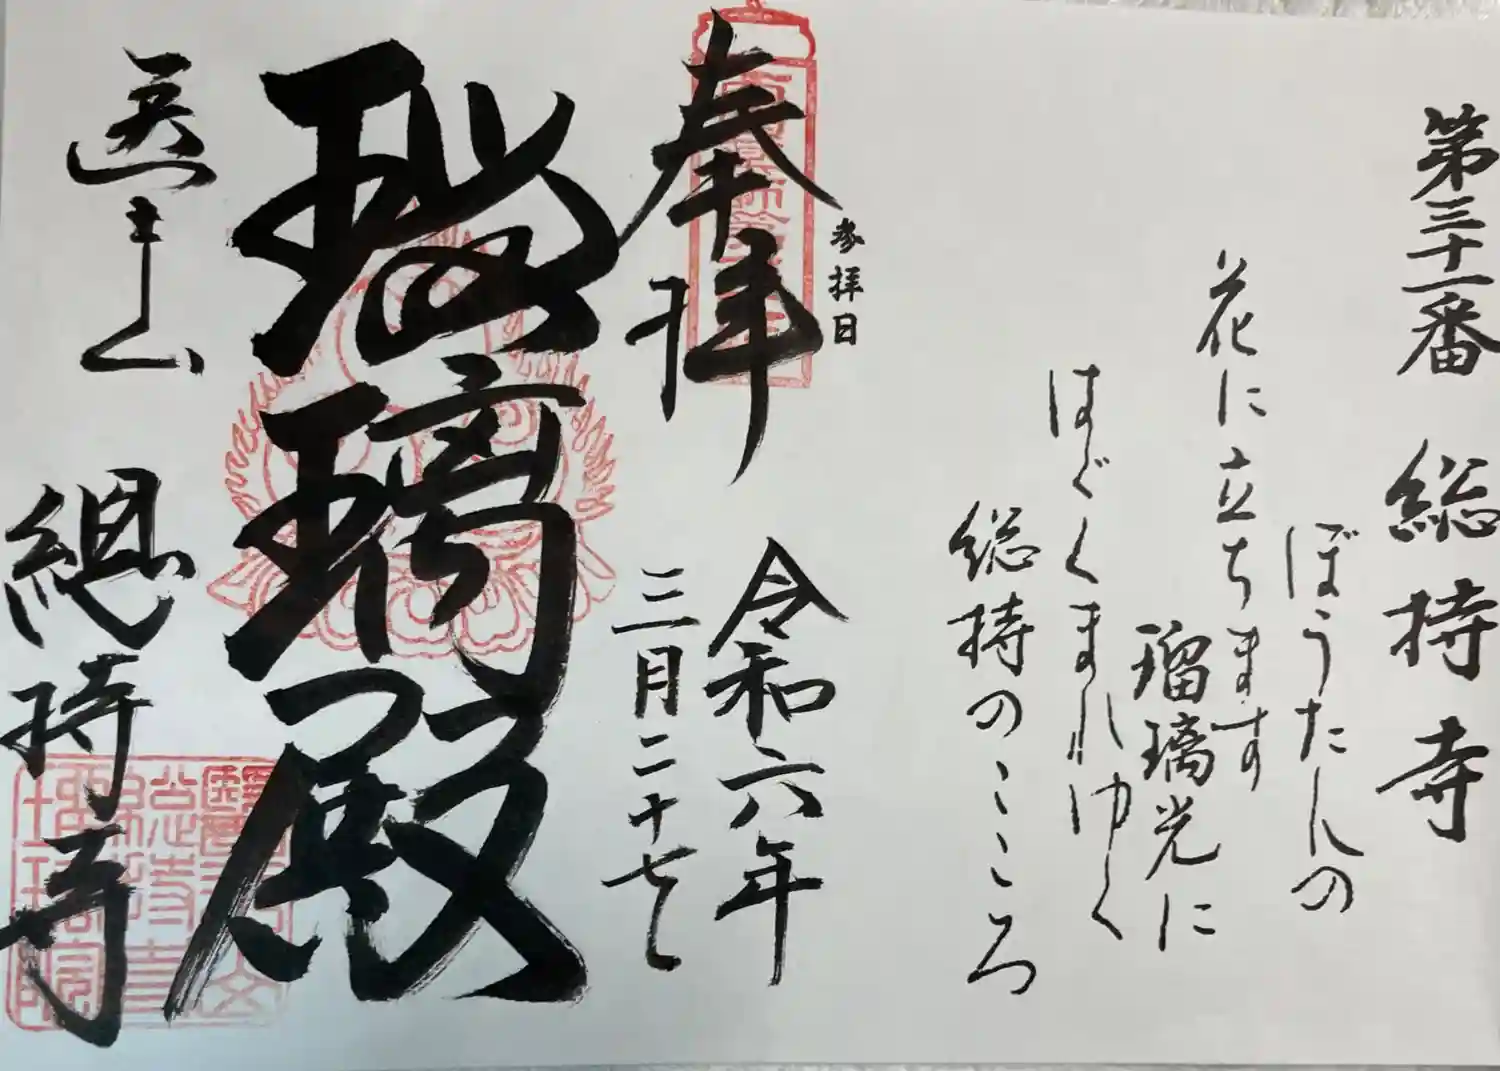 第三十一番　総持寺
ぼうたんの
花に立ちます
瑠璃光に
はぐくまれゆく
総持のこころ
参拝日
奉拝
令和六年
三月二十七日
瑠璃殿
医王山　總持寺